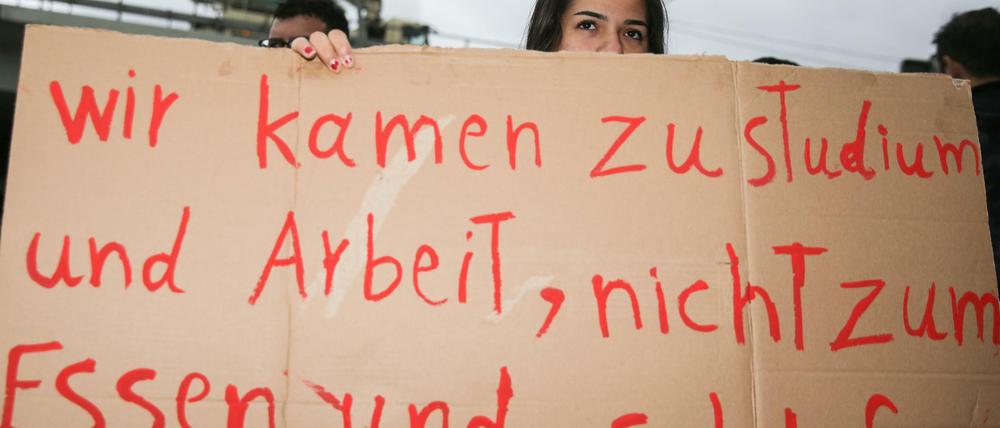 wir kamen zu studium
und Arbeit, nicht zum
Essen und